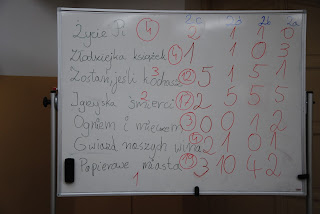 8c 2b 2b 2a
Życie Pi 4 2 1 1 0
Złodziejka książek 4 1 1 0 3
Zostań jeśli kochasz 3 12 5 1 5 1
Igrzyska śmierci 2 17 2 5 5 5
Ogniem i mieczem 3 0 0 1 2
Gwiazd naszych wina 4 2 1 0 1
Papierowe miasta 19 3 10 4 2
1